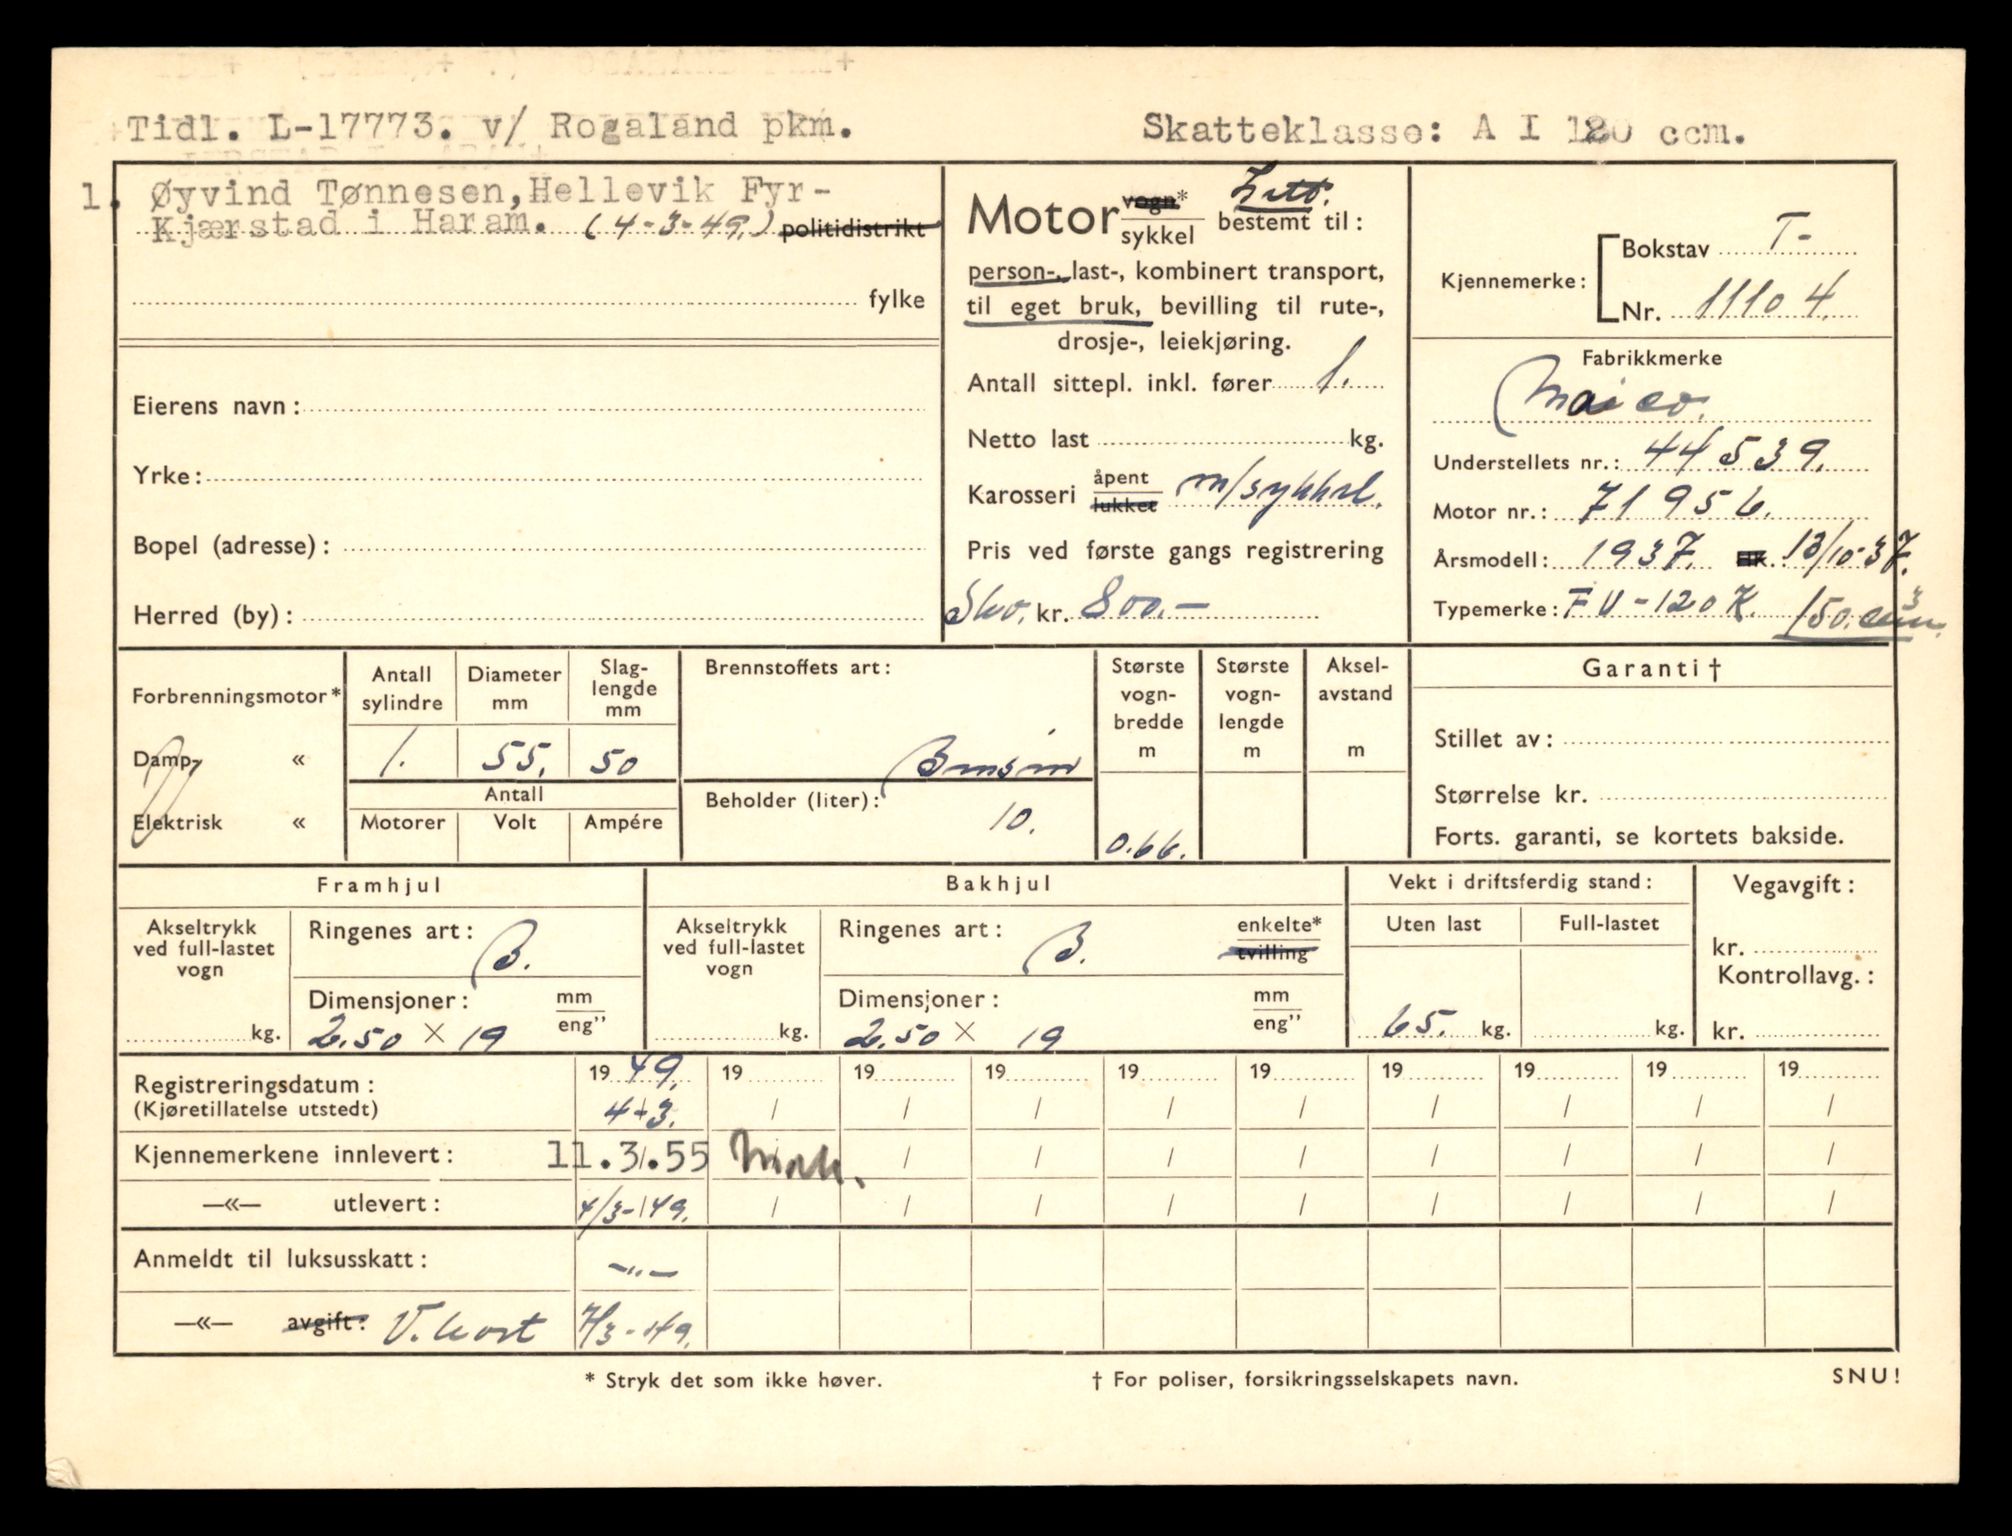 Tidl. L-17773. v/ Rogaland pkm.
Skatteklasse: A I 120 ccm.
1. Øyvind Tønnesen, Hellevik Fyr-
Kjærstad i Haram. (4-3-49.) politidistrikt
fylke
Eierens navn:
Yrke:
Bopel (adresse):
Herred (by):
Motor vogn* sykkel Lett. bestemt til:
person-, last-, kombinert transport,
til eget bruk, bevilling til rute-,
drosje-, leiekjøring.
Antall sittepl. inkl. fører 1.
Netto last kg.
Karosseri åpent lukket m/sykkel.
Pris ved første gangs registrering
Skv. kr. 800.-
Kjennemerke: Bokstav T-
Nr. 11104.
Fabrikkmerke
Maico.
Understellets nr.: 44539.
Motor nr.: 71956.
Årsmodell: 1937. HK. 13/10-37.
Typemerke: FU-120 K. 150. ccm.
Forbrenningsmotor*
Damp- «
Elektrisk «
Antall sylindre
1.
Diameter mm
55.
Slag-lengde mm
50
Antall
Motorer Volt Ampére
Brennstoffets art:
Bensin
Beholder (liter):
10.
Største vogn-bredde m
0.66.
Største vogn-lengde m
Aksel-avstand m
Garanti †
Stillet av:
Størrelse kr.
Forts. garanti, se kortets bakside.
Framhjul
Akseltrykk ved full-lastet vogn
kg.
Ringenes art: B.
Dimensjoner: mm eng"
2.50 × 19
Bakhjul
Akseltrykk ved full-lastet vogn
kg.
Ringenes art: B. enkelte* tvilling
Dimensjoner: mm eng"
2.50 × 19
Vekt i driftsferdig stand:
Uten last Full-lastet
65. kg. kg.
Vegavgift:
kr.
Kontrollavg.:
kr.
Registreringsdatum: 1949. 19 19 19 19 19 19 19 19 19
(Kjøretillatelse utstedt) 4-3. / / / / / / / / /
Kjennemerkene innlevert: 11.3.55 / / / / / / / /
—«— utlevert: 4/3-149. / / / / / / / / /
Anmeldt til luksusskatt: -"-
—«— avgift: V.kort 7/3-49.
* Stryk det som ikke høver.
† For poliser, forsikringsselskapets navn.
SNU!